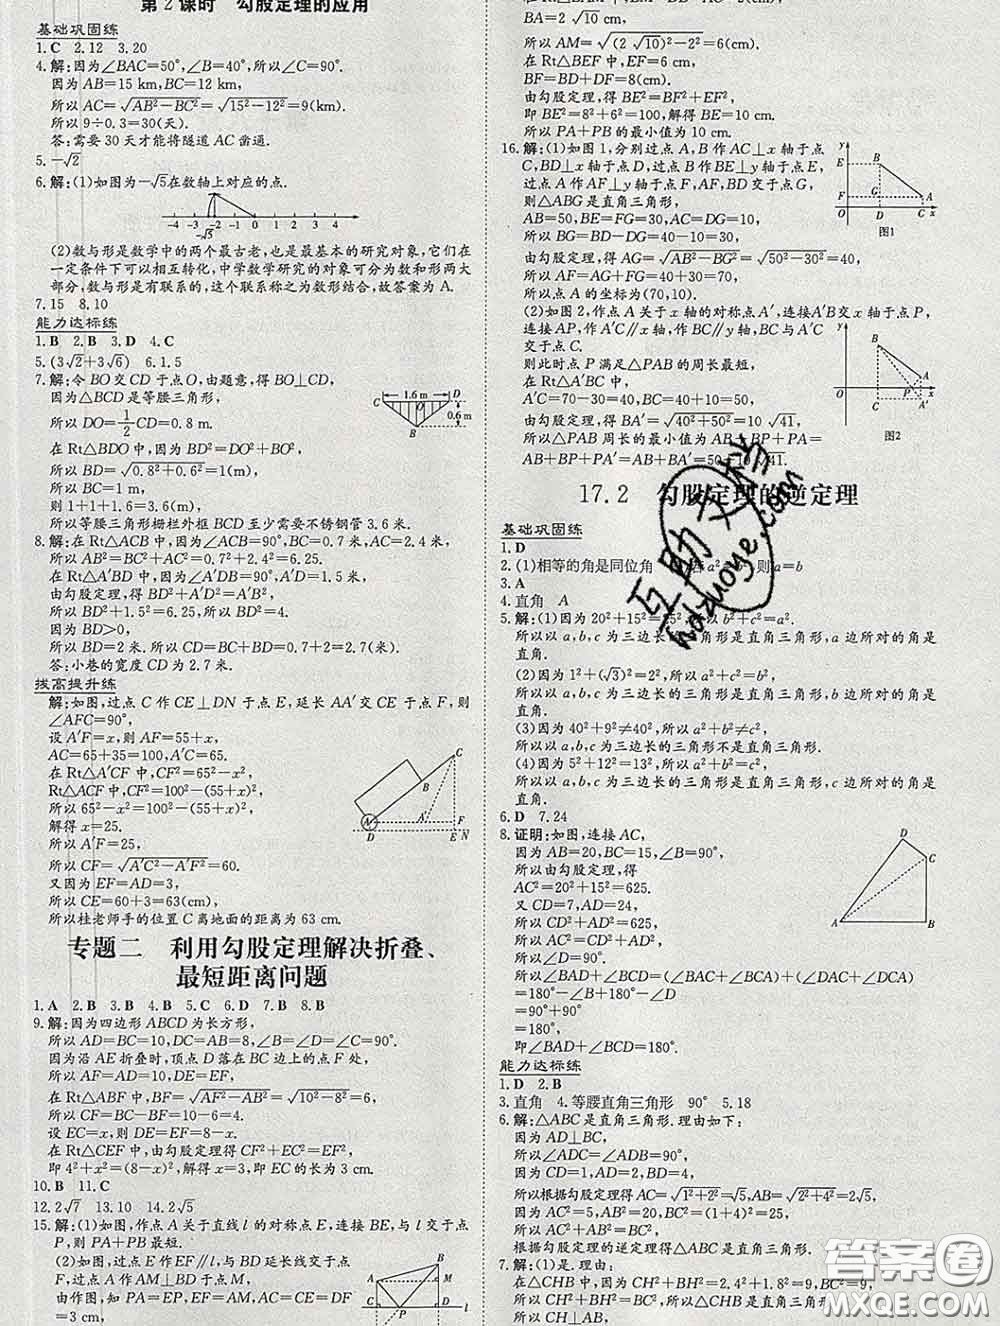 第2课时　勾股定理的应用
基础巩固练
1.C　2.12　3.20
4.解:因为∠BAC=50°,∠B=40°,所以∠C=90°.
因为AB=15 km,BC=12 km,
所以AC=√(AB²-BC²)=√(15²-12²)=9(km).
所以9÷0.3=30(天).
答:需要30天才能将隧道AC凿通.
5.-√2
6.解:(1)如图为-√5在数轴上对应的点.
-4 -3 -2 -1 0 1 2 3 4
-√5
(2)数与形是数学中的两个最古老,也是最基本的研究对象,它们在
一定条件下可以相互转化,中学数学研究的对象可分为数和形两大
部分,数与形是有联系的,这个联系称之为数形结合,故答案为A.
7.15　8.10
能力达标练
1.B　2.B　3.D　4.C
5.(3√2+3√6)　6.1.5
7.解:令BO交CD于点O,由题意,得BO⊥CD,
因为△BCD是等腰三角形,
所以DO=1/2CD=0.8 m.
在Rt△BDO中,因为BD²=DO²+BO²,
所以BD=√(0.8²+0.6²)=1(m),
所以BC=1(m),
则1+1+1.6=3.6(m),
所以等腰三角形栅栏外框BCD至少需要不锈钢管3.6米.
C 1.6 m D
O 0.6 m
B
8.解:在Rt△ACB中,因为∠ACB=90°,BC=0.7米,AC=2.4米,
所以AB²=0.7²+2.4²=6.25.
在Rt△A′BD中,因为∠A′DB=90°,A′D=1.5米,
由勾股定理,得BD²+A′D²=A′B²,
所以BD²+1.5²=6.25,所以BD²=4.
因为BD>0,
所以BD=2米.所以CD=BC+BD=0.7+2=2.7(米).
答:小巷的宽度CD为2.7米.
拔高提升练
解:如图,过点C作CE⊥DN于点E,延长AA′交CE于点F,则
∠AFC=90°,
设A′F=x,则AF=55+x,
AC=65+35=100,A′C=65.
在Rt△A′CF中,CF²=65²-x²,
Rt△ACF中,CF²=100²-(55+x)²,
所以65²-x²=100²-(55+x)²,
解得x=25.
所以A′F=25,
所以CF=√(A′C²-A′F²)=60.
又因为EF=AD=3,
所以CE=60+3=63(cm),
所以桂老师手的位置C离地面的距离为63 cm.
C
A A′ F
D E N
专题二　利用勾股定理解决折叠、
最短距离问题
1.A　2.B　3.B　4.B　5.C　6.D　7.B　8.B
9.解:因为四边形ABCD为长方形,
所以AD=BC=10,DC=AB=8,∠B=∠D=∠C=90°.
因为沿AE折叠时,顶点D落在BC边上的点F处,
所以AF=AD=10,DE=EF,
在Rt△ABF中,BF=√(AF²-AB²)=√(10²-8²)=6,
所以CF=BC-BF=10-6=4.
设EC=x,则DE=EF=8-x.
在Rt△CEF中,由勾股定理得CF²+EC²=EF²,
即4²+x²=(8-x)²,解得x=3,即EC的长为3 cm.
10.B　11.C
12.2√7　13.10　14.2√5
15.解:(1)如图,作点A关于直线l的对称点E,连接BE,与l交于点
P,则PA+PB最短.
(2)如图,过点E作EF∥l,与BD延长线交于点
F,过点A作AM⊥BD于点M,
由作图,知PA=EP,EM=EF,AC=CE=DF
=3 cm,
A B M
C P l
BA=2√10 cm,
所以AM=√((2√10)²-2²)=6(cm).
在Rt△BEF中,EF=6 cm,
BF=BD+DF=8(cm).
由勾股定理,得BE²=BF²+EF²,
即BE²=8²+6²=100,解得BE=10 cm.
所以PA+PB的最小值为10 cm.
16.解:(1)如图1,分别过点A,B作AC⊥x轴于点
C,BD⊥x轴于点D,过点B作BE⊥y轴于点E,
过点A作AF⊥y轴于点F,BD交于点G,
则△ABG是直角三角形,
AB=50,BE=FG=30,AC=DG=10,
所以BG=BD-DG=40-10=30,
由勾股定理,得AG=√(AB²-BG²)=√(50²-30²)=40,
所以AF=AG+FG=40+30=70,
所以点A的坐标为(70,10).
y
E B
F G A
O D C x
图1
(2)如图2,作点A关于x轴的对称点A′,连接A′B交x轴于点P,
连接AP,作A′C∥x轴,BC∥y轴,BC与A′C
交于点C.
则此时点P满足△PAB的周长最短.
在Rt△A′BC中,
A′C=70-30=40,BC=40+10=50,
由勾股定理,得BA′=√(40²+50²)=10√41.
所以△PAB周长的最小值为AB+BP+PA=
AB+BP+PA′=AB+BA′=50+10√41.
y
B
A
O P x
C A′
图2
17.2　勾股定理的逆定理
基础巩固练
1.D
2.(1)相等的角是同位角　则a=b
3.A
4.直角　A
5.解:(1)因为20²+15²=25²,所以b²+c²=a².
所以以a,b,c为三边长的三角形是直角三角形,a边所对的角是
直角.
(2)因为1²+(√3)²=2²,所以a²+c²=b².
所以以a,b,c为三边长的三角形是直角三角形,b边所对的角是
直角.
(3)因为40²+9²≠40²,所以a²+b²≠c².
所以以a,b,c为三边长的三角形不是直角三角形.
(4)因为5²+12²=13²,所以a²+b²=c²,
所以以a,b,c为三边长的三角形是直角三角形,c边所对的角是
直角.
6.D　7.24
8.证明:如图,连接AC,
因为AB=20,BC=15,∠B=90°,
所以由勾股定理,得
AC²=20²+15²=625.
又CD=7,AD=24,
所以CD²+AD²=625,
所以AC²=CD²+AD²,
所以∠D=90°.
D
C
A B
所以∠BAD+∠BCD=(∠BAC+∠BCA)+(∠DAC+∠DCA)
=180°-∠B+180°-∠D
=90°+90°
=180°,
即∠BAD+∠BCD=180°.
能力达标练
1.D　2.B
3.直角　4.等腰直角三角形　90°　5.18
6.解:△ABC是直角三角形.理由如下:
因为AD⊥BC,
所以∠ADC=∠ADB=90°,
因为CD=1,AD=2,BD=4,
所以根据勾股定理得AC=√(1²+2²)=√5,AB=√(2²+4²)=2√5,
所以AC²+AB²=25,BC²=(1+4)²=25,
所以AC²+AB²=BC²,
根据勾股定理的逆定理得△ABC是直角三角形.
7.解:(1)是.理由:
在△CHB中,因为CH²+BH²=2.4²+1.8²=9,BC²=9,
所以CH²+BH²=BC²,
所以CH⊥AB,
互助文档
hdzuoye.com
答案圈
MXQE.COM